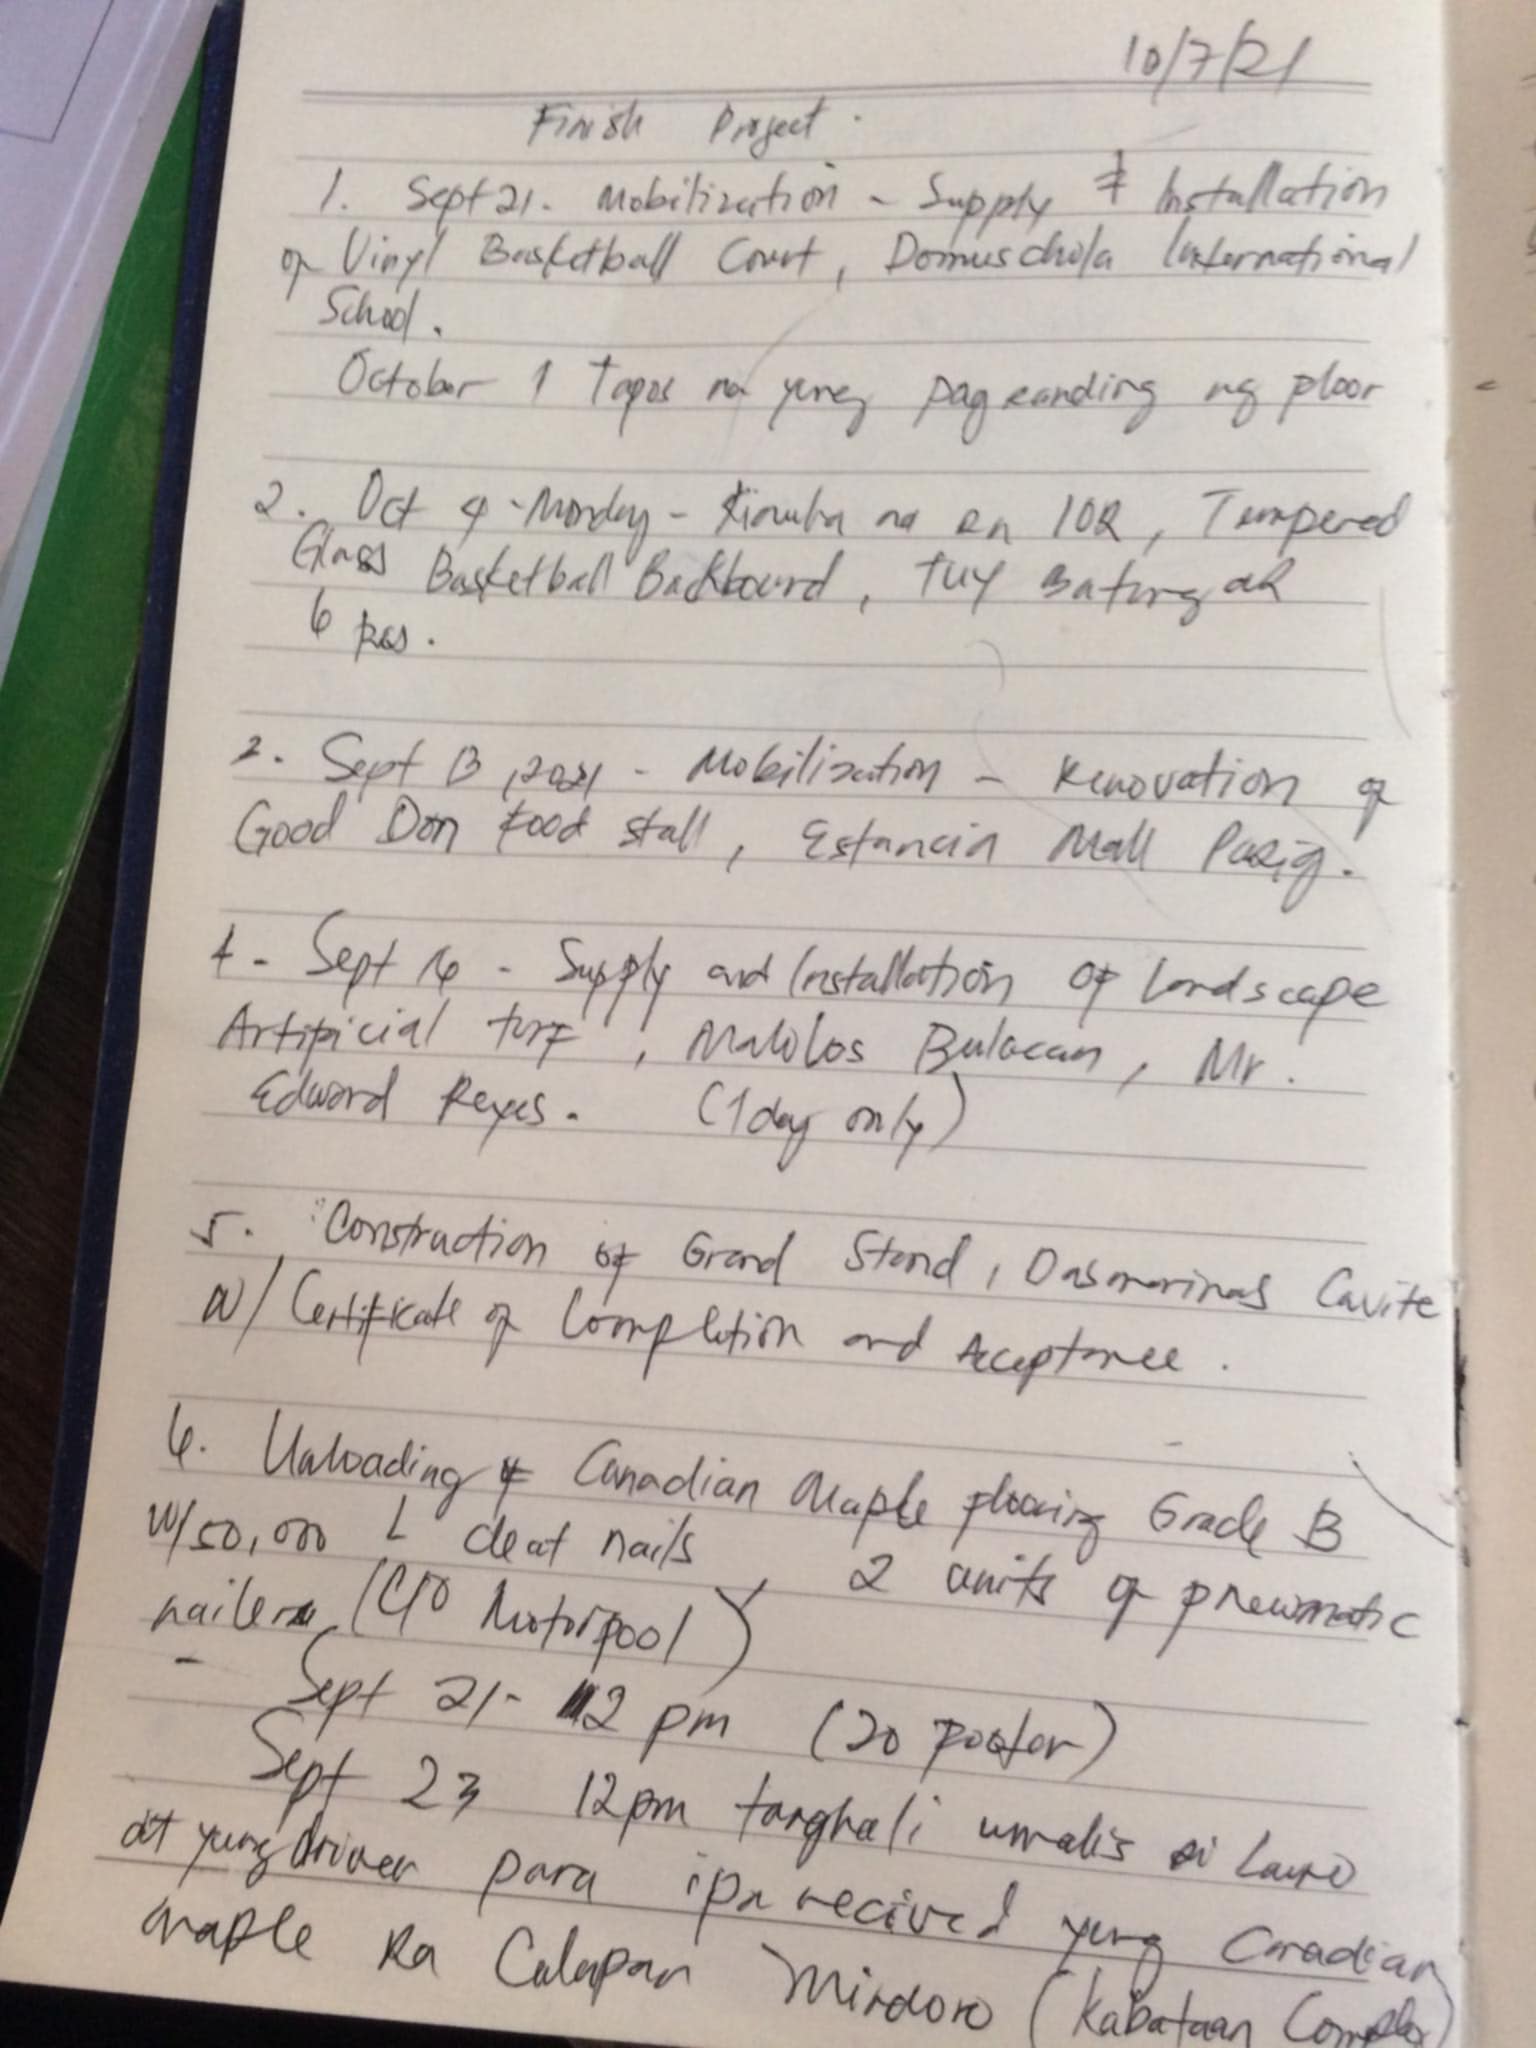 10/7/21
Finish Project.
1. Sept 21. Mobilization - Supply & Installation
of Vinyl Basketball Court, Domuschola International
School.
October 1 Tapos na yung pag sanding ng floor
2. Oct 4 - Monday - Kinuha na sa 10R, Tempered
Glass Basketball Backboard, TUY Batangas
6 pcs.
3. Sept 13, 2021 - Mobilization - Renovation of
Good Don food stall, Estancia Mall Pasig.
4. Sept 16 - Supply and Installation of Landscape
Artificial turf, Malolos Bulacan, Mr.
Edward Reyes. (1 day only)
5. Construction of Grand Stand, Dasmarinas Cavite
W/ Certificate of Completion and Acceptance.
6. Unloading of Canadian Maple flooring Grade B
W/ 50,000 L cleat nails, 2 units of pneumatic
nailers (C/O Motorpool)
- Sept 21 - 2 pm (20 footer)
Sept 23 12pm tanghali umalis si Lauro
at yung driver para ipa recived yung Canadian
maple sa Calapan Mindoro (Kabataan Complex)